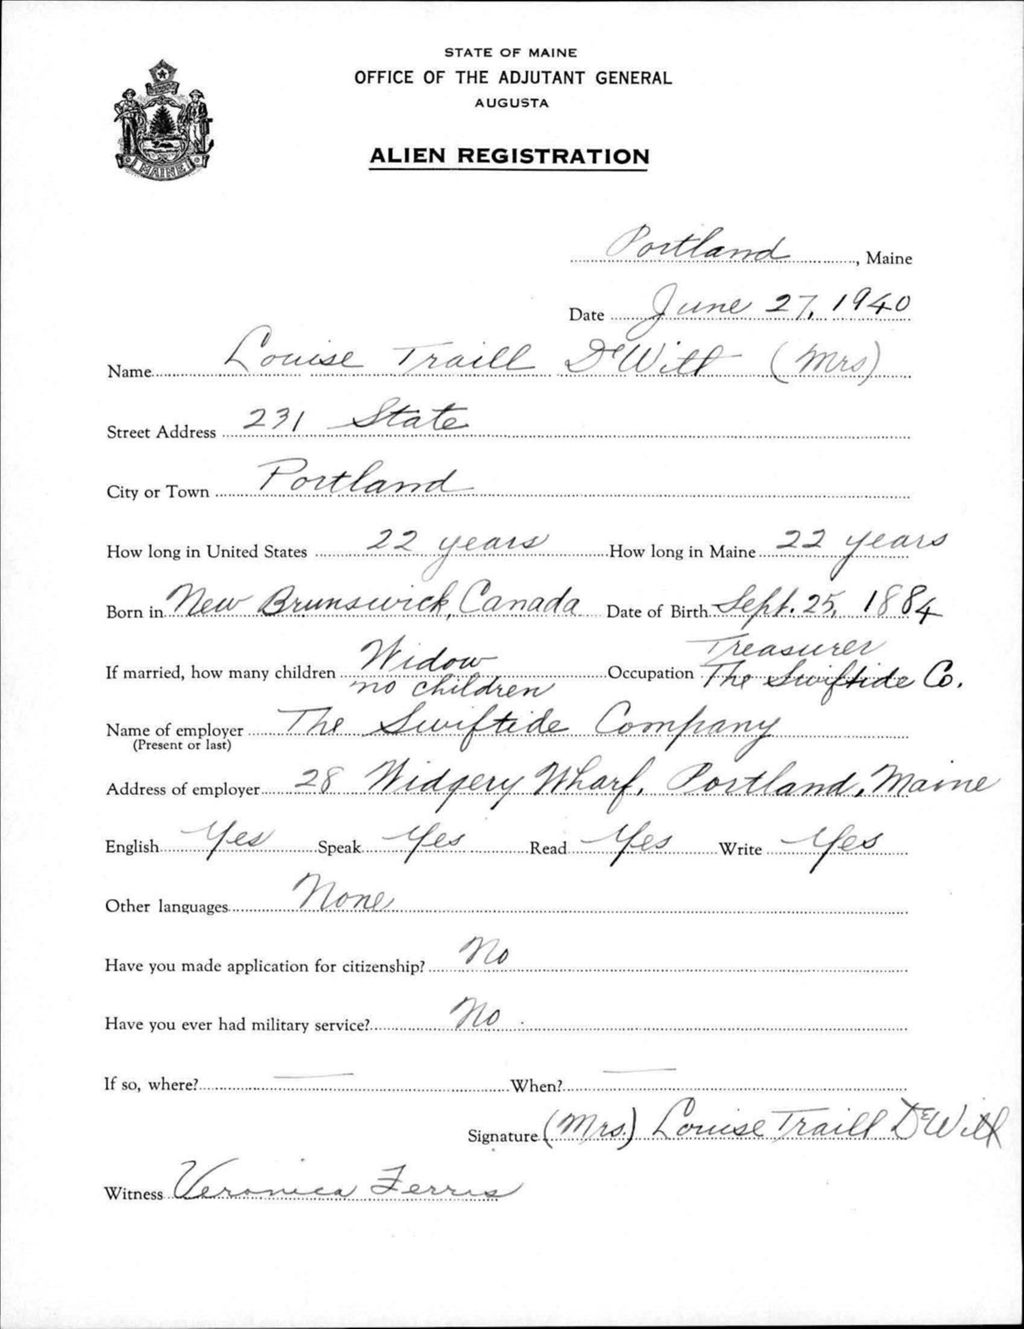 STATE OF MAINE
OFFICE OF THE ADJUTANT GENERAL
AUGUSTA
ALIEN REGISTRATION
MAINE
Portland, Maine
Date June 27, 1940
Name Louise Traill DeWitt (Mrs)
Street Address 231 State
City or Town Portland
How long in United States 22 years How long in Maine 22 years
Born in New Brunswick, Canada Date of Birth Sept. 25, 1884
If married, how many children Widow no children Occupation Treasurer The Swiftide Co.
Name of employer The Swiftide Company
(Present or last)
Address of employer 28 Widgery Wharf, Portland, Maine
English Yes Speak Yes Read Yes Write Yes
Other languages None
Have you made application for citizenship? No
Have you ever had military service? No
If so, where? — When? —
Signature (Mrs.) Louise Traill DeWitt
Witness Veronica Ferris